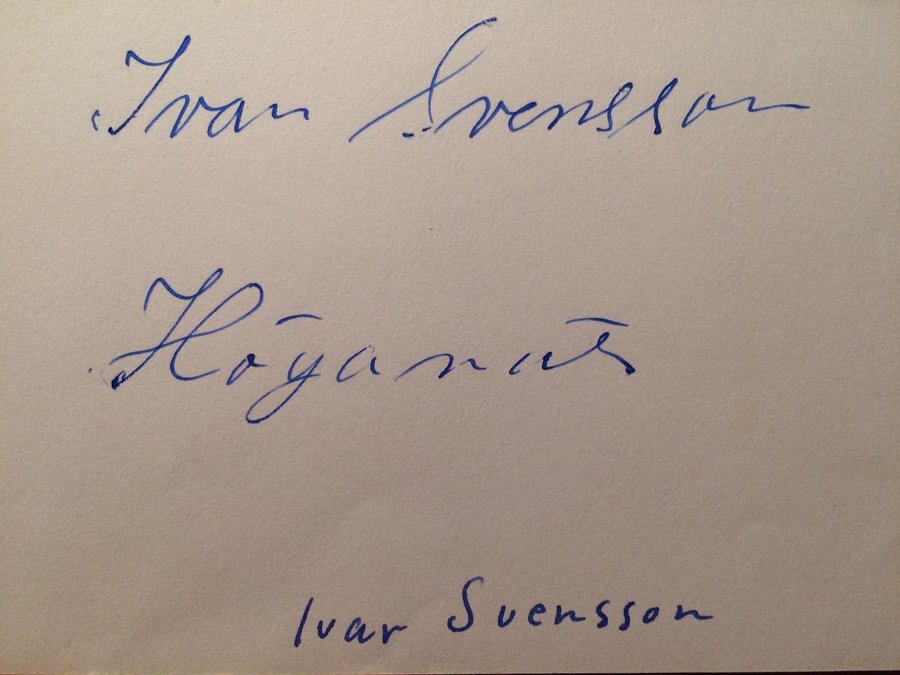 Ivar Svensson
Höganäs
Ivar Svensson